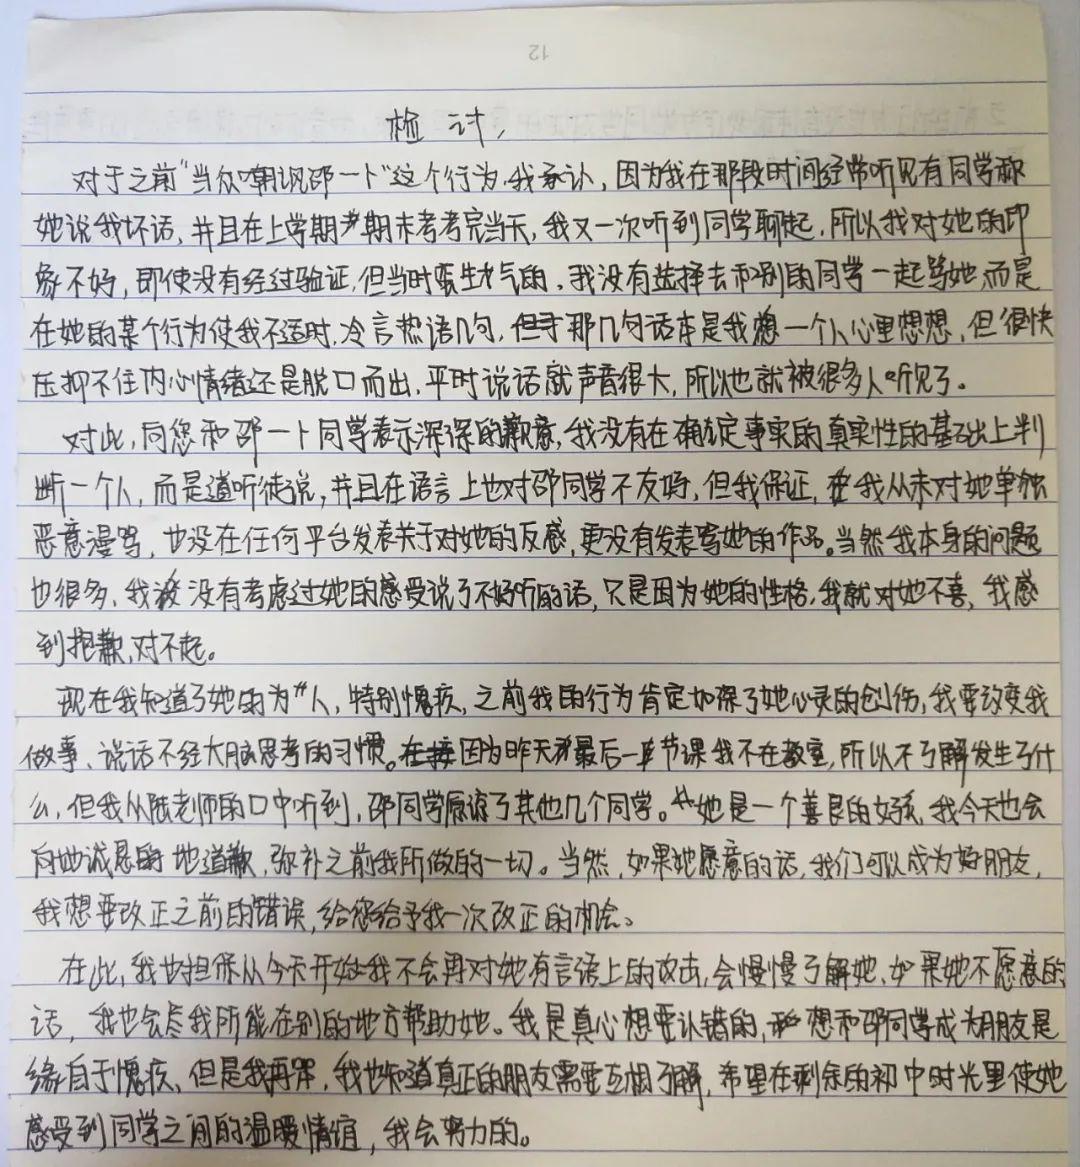 12
检讨
对于之前"当众嘲讽邵一卜"这个行为,我承认,因为我在那段时间经常听见有同学称
她说我坏话,并且在上学期期末考考完当天,我又一次听到同学聊起,所以我对她的印
象不好,即使没有经过验证,但当时蛮生气的,我没有选择去和别的同学一起骂她,而是
在她的某个行为使我不适时,冷言热语几句,但于那几句话本是我想一个人心里想想,但很快
压抑不住内心情绪还是脱口而出,平时说话就声音很大,所以也就被很多人听见了。
对此,向您和邵一卜同学表示深深的歉意,我没有在确定事实的真实性的基础上判
断一个人,而是道听徒说,并且在语言上也对邵同学不友好,但我保证,我从未对她单独
恶意漫骂,也没在任何平台发表关于对她的反感,更没有发表骂她的作品。当然我本身的问题
也很多,我没有考虑过她的感受说了不好听的话,只是因为她的性格,我就对她不喜,我感
到抱歉,对不起。
现在我知道了她的为人,特别愧疚,之前我的行为肯定加深了她心灵的创伤,我要改变我
做事、说话不经大脑思考的习惯。因为昨天最后一节课我不在教室,所以不了解发生了什
么,但我从陆老师的口中听到,邵同学原谅了其他几个同学。她是一个善良的好孩,我今天也会
向她诚恳的地道歉,弥补之前我所做的一切。当然,如果她愿意的话,我们可以成为好朋友,
我想要改正之前的错误,给您给予我一次改正的机会。
在此,我也担保从今天开始我不会再对她有言语上的攻击,会慢慢了解她,如果她不愿意的
话,我也会尽我所能在别的地方帮助她。我是真心想要认错的,想和邵同学成为朋友是
缘自于愧疚,但是我也知道真正的朋友需要互相了解,希望在剩余的初中时光里使她
感受到同学之间的温暖情谊,我会努力的。